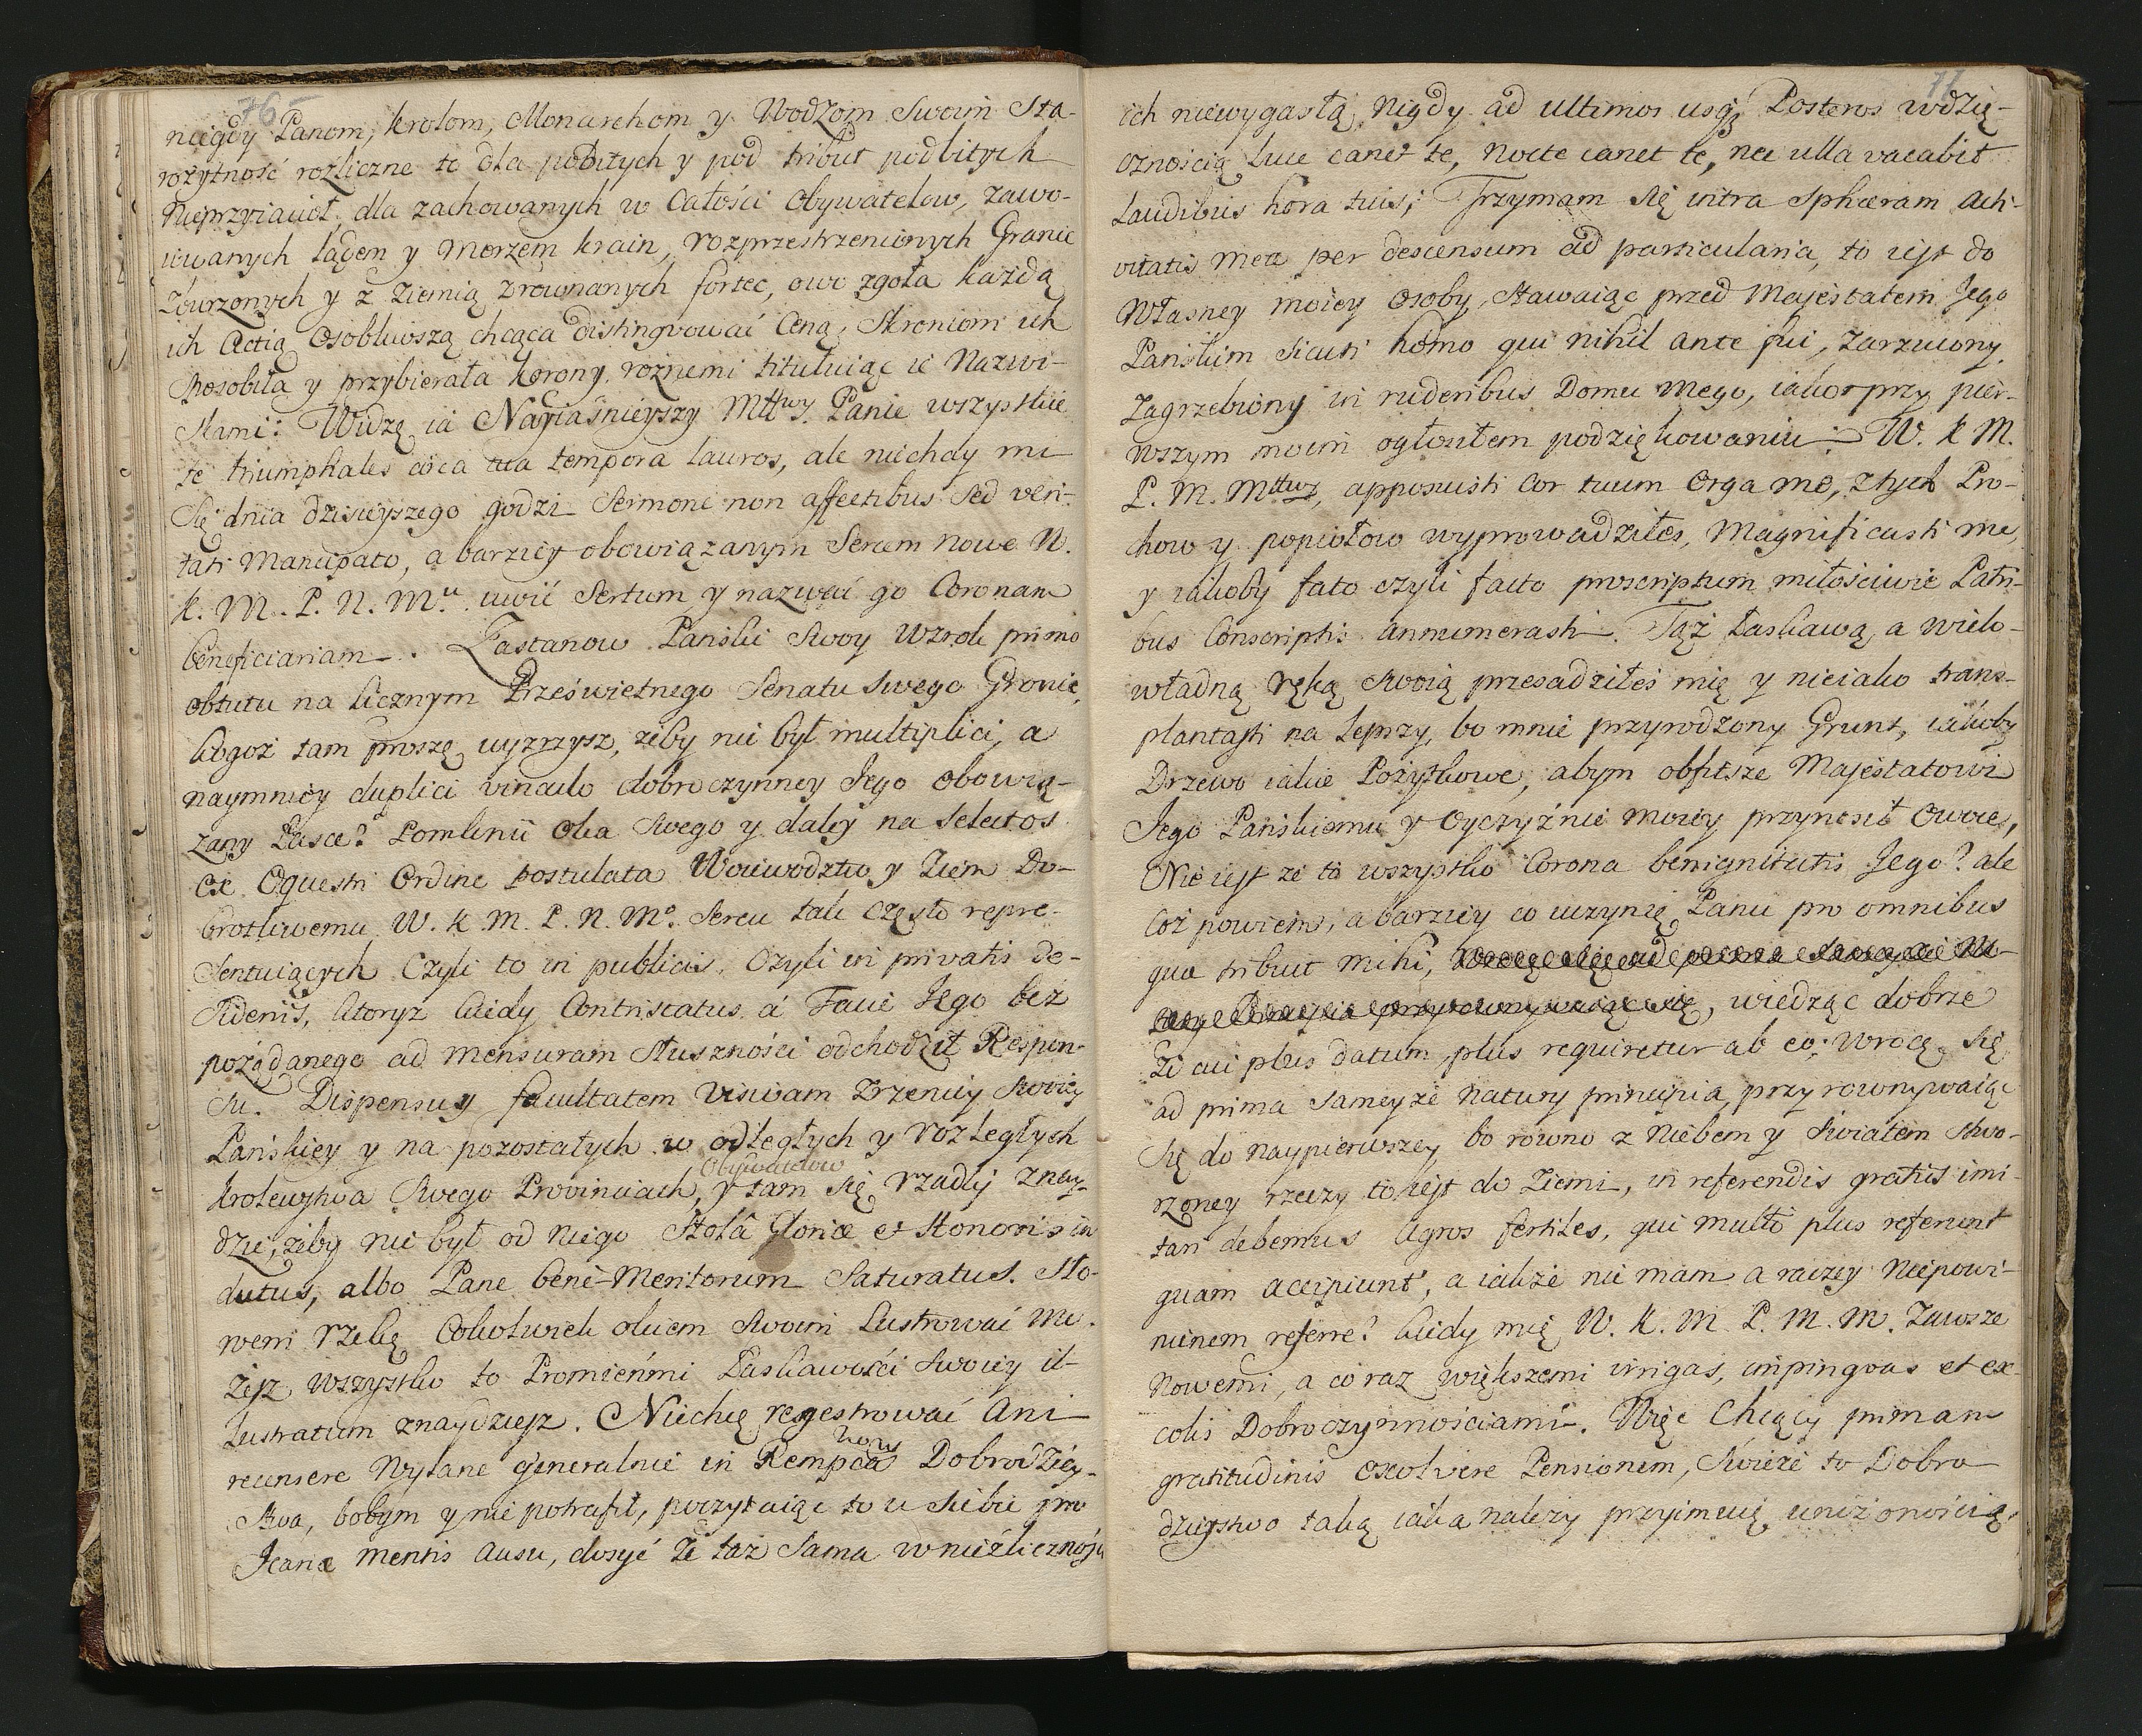 76
niegdy Panom, krolom, Monarchom y Wodzom Swoim Sta-
rożytność rozliczne to dla pobitych y pod tribut podbitych
Nieprzyiacioł, dla zachowanych w Całości Obywatelow, zawo-
iowanych lądem y Morzem krain, rozprzestrzenionych Granic
Zburzonych y z Ziemią zrownanych fortec, owo zgoła każdą
ich Actią Osobliwszą chcąca distingvować Ceną, Skroniom ich
sposobiła y przybierała korony, roznemi titułuiąc ie Nazwi-
skami: Widzę ia Nayiaśnieyszy Mttwy. Panie wszystkie
te triumphales circa tua tempora lauros, ale niechay mi
Się dnia dzisieyszego godzi Sermone non affectibus sed veri-
tati Mancipato, a barziey obowiązanym Sercem nowe W.
K. M. P. N. Mu. uwić Sertum y nazwać go Coronam
beneficiariam. Zastanow Pański Swoy Wzrok primo
obtutu na licznym Prześwietnego Senatu Swego Gronie,
kogoż tam proszę uyzrzysz, żeby nie był multiplici, a
naymniey duplici vinculo dobroczynney Jego obowią-
zany Łasce? Pomkniy Oka Swego y daley na Selectos
ex Equestri Ordine postulata Woiewodztw y Ziem Do-
brotliwemu W. K. M. P. N. Mo. Sercu tak często repre-
sentuiących Czyli to in publicis, Czyli in privatis de-
sideriis, ktoryz kiedy Contristatus á Facie Jego bez
pożądanego ad mensuram słuszności odchodził Respon-
su. Dispensuy facultatem visivam Zrzenicy Swoiey
Pańskiey y na pozostałych w odległych y rozległych
Obywatelow
krolewstwa Swego Prowinciach, y tam się rzadki znay-
dzie, żeby nie był od Niego Stolâ Gloriæ et Honoris in
dutus, albo Pane bene-Meritorum Saturatus. Sło-
wem rzekę Cokolwiek okiem Swoim Lustrować mo-
żesz, wszystko to Promieńmi Łaskawości Swoiey il-
lustratum znaydziesz. Niechcę regestrować Ani
recensere Wylane generalnie in Rempcam
Dobrodziey-
stwa, bobym y nie potrafił, poczytaiąc to u siebie pro
Icariæ mentis ausu, dosyć że taż Sama w niezliczność
71
ich niewygasłą, Nigdy ad ultimos usq; Posteros wdzię-
cznością Luce canet te, Nocte canet te, nec ulla vacabit
Laudibus hora tuis; Trzymam się intra Sphæram acti-
vitatis meæ per descensum ad particularia, to iest do
Własney moiey Osoby, Stawaiąc przed Majestatem Jego
Pańskim sicuti homo qui nihil ante fui, Zarzucony,
Zagrzebiony in ruderibus Domu Mego, iakom przy pier-
wszym moim ogłosiłem podziękowaniu W. K M.
P. M. Mttwy, apposuisti Cor tuum Erga me, z tych Pro-
chow y popiołow wyprowadziłes, Magnificasti me,
y iakoby fato czyli facto proscriptum miłościwie Patri-
bus Conscriptis annumerasti. Tąż Łaskawą, a wielo-
władną ręką Swoią przesadziłeś mię y nieiako trans-
plantasti na Lepszy, bo mnie przyrodzony Grunt, iakoby
Drzewo iakie Pożytkowe, abym obfitsze Majestatowi
Jego Pańskiemu y Oyczyźnie moiey przynosił Owoce,
Nie iest że to wszystko Corona benignitatis Jego? ale
Coż powiem, a barziey co uczynię Panu pro omnibus
quæ tribuit mihi, wiedząc dobrze
Że cui plus datum, plus requiretur ab eo; Wrocę się
ad prima Sameyże Natury principia, przyrownywaiąc
Się do Naypierwszey, bo rowno z Niebem y Swiatem Stwo-
rzoney rzeczy to iest do Ziemi, in referendis gratiis imi-
tari debemus Agros fertiles, qui multo plus referunt
quam accipiunt, a iakże nie mam a raczey Niepowi-
nienem referre? kiedy mię W. K. M P. M. M. Zawsze
Nowemi, a co raz większemi irrigas, impingvas et ex-
colis Dobroczynnościami. Więc Chcący primam
gratitudinis exolvere Pensionem, Swieże to Dobro
dzieystwo taką iaką należy przyimuię uniżonością,